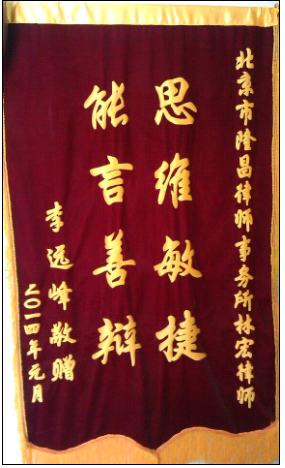 北京市隆昌律师事务所林宏律师
思维敏捷
能言善辩
李远峰敬赠
二〇一四年元月